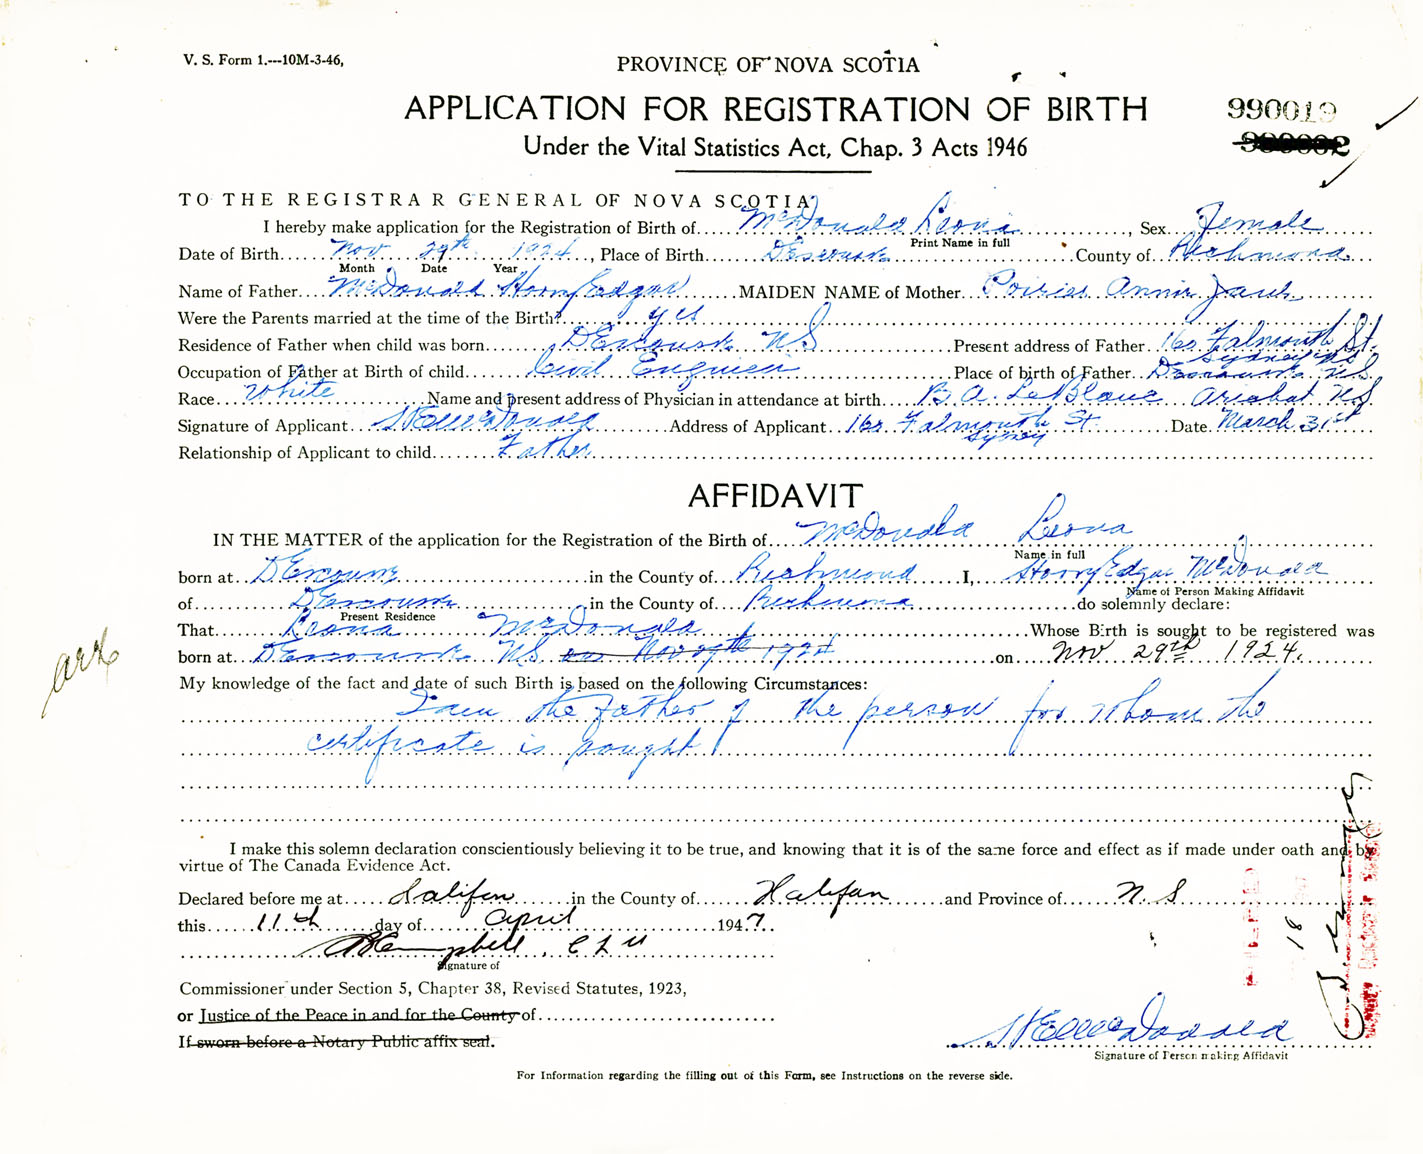 V. S. Form 1.---10M-3-46,
PROVINCE OF NOVA SCOTIA
APPLICATION FOR REGISTRATION OF BIRTH
990019
Under the Vital Statistics Act, Chap. 3 Acts 1946
TO THE REGISTRAR GENERAL OF NOVA SCOTIA
I hereby make application for the Registration of Birth of McDonald Leona, Sex Female
Print Name in full
Date of Birth Nov 29th 1924, Place of Birth DEscousse County of Richmond
Month Date Year
Name of Father McDonald Harry Edgar MAIDEN NAME of Mother Poirier Annie
Were the Parents married at the time of the Birth? yes
Residence of Father when child was born DEscousse NS Present address of Father 160 Falmouth St.
Sydney NS
Occupation of Father at Birth of child Civil Engineer Place of birth of Father Descousse N.S.
Race White Name and present address of Physician in attendance at birth B. A. LeBlanc Arichat NS
Signature of Applicant HEMcDonald Address of Applicant 160 Falmouth St Date March 31st
Sydney
Relationship of Applicant to child Father
AFFIDAVIT
IN THE MATTER of the application for the Registration of the Birth of McDonald Leona
Name in full
born at DEscousse in the County of Richmond I, Harry Edgar McDonald
Name of Person Making Affidavit
of DEscousse in the County of Richmond do solemnly declare:
Present Residence
That Leona McDonald Whose Birth is sought to be registered was
born at DEscousse N.S. on Nov 29th 1924 on Nov 29th 1924.
My knowledge of the fact and date of such Birth is based on the following Circumstances:
I am the father of the person for whom the
certificate is sought
I make this solemn declaration conscientiously believing it to be true, and knowing that it is of the same force and effect as if made under oath and by
virtue of The Canada Evidence Act.
Declared before me at Halifax in the County of Halifax and Province of N.S
this 11th day of April 1947.
Campbell,
Signature of
Commissioner under Section 5, Chapter 38, Revised Statutes, 1923,
or Justice of the Peace in and for the County of
If sworn before a Notary Public affix seal.
HEMcDonald
Signature of Person making Affidavit
For Information regarding the filling out of this Form, see Instructions on the reverse side.
18